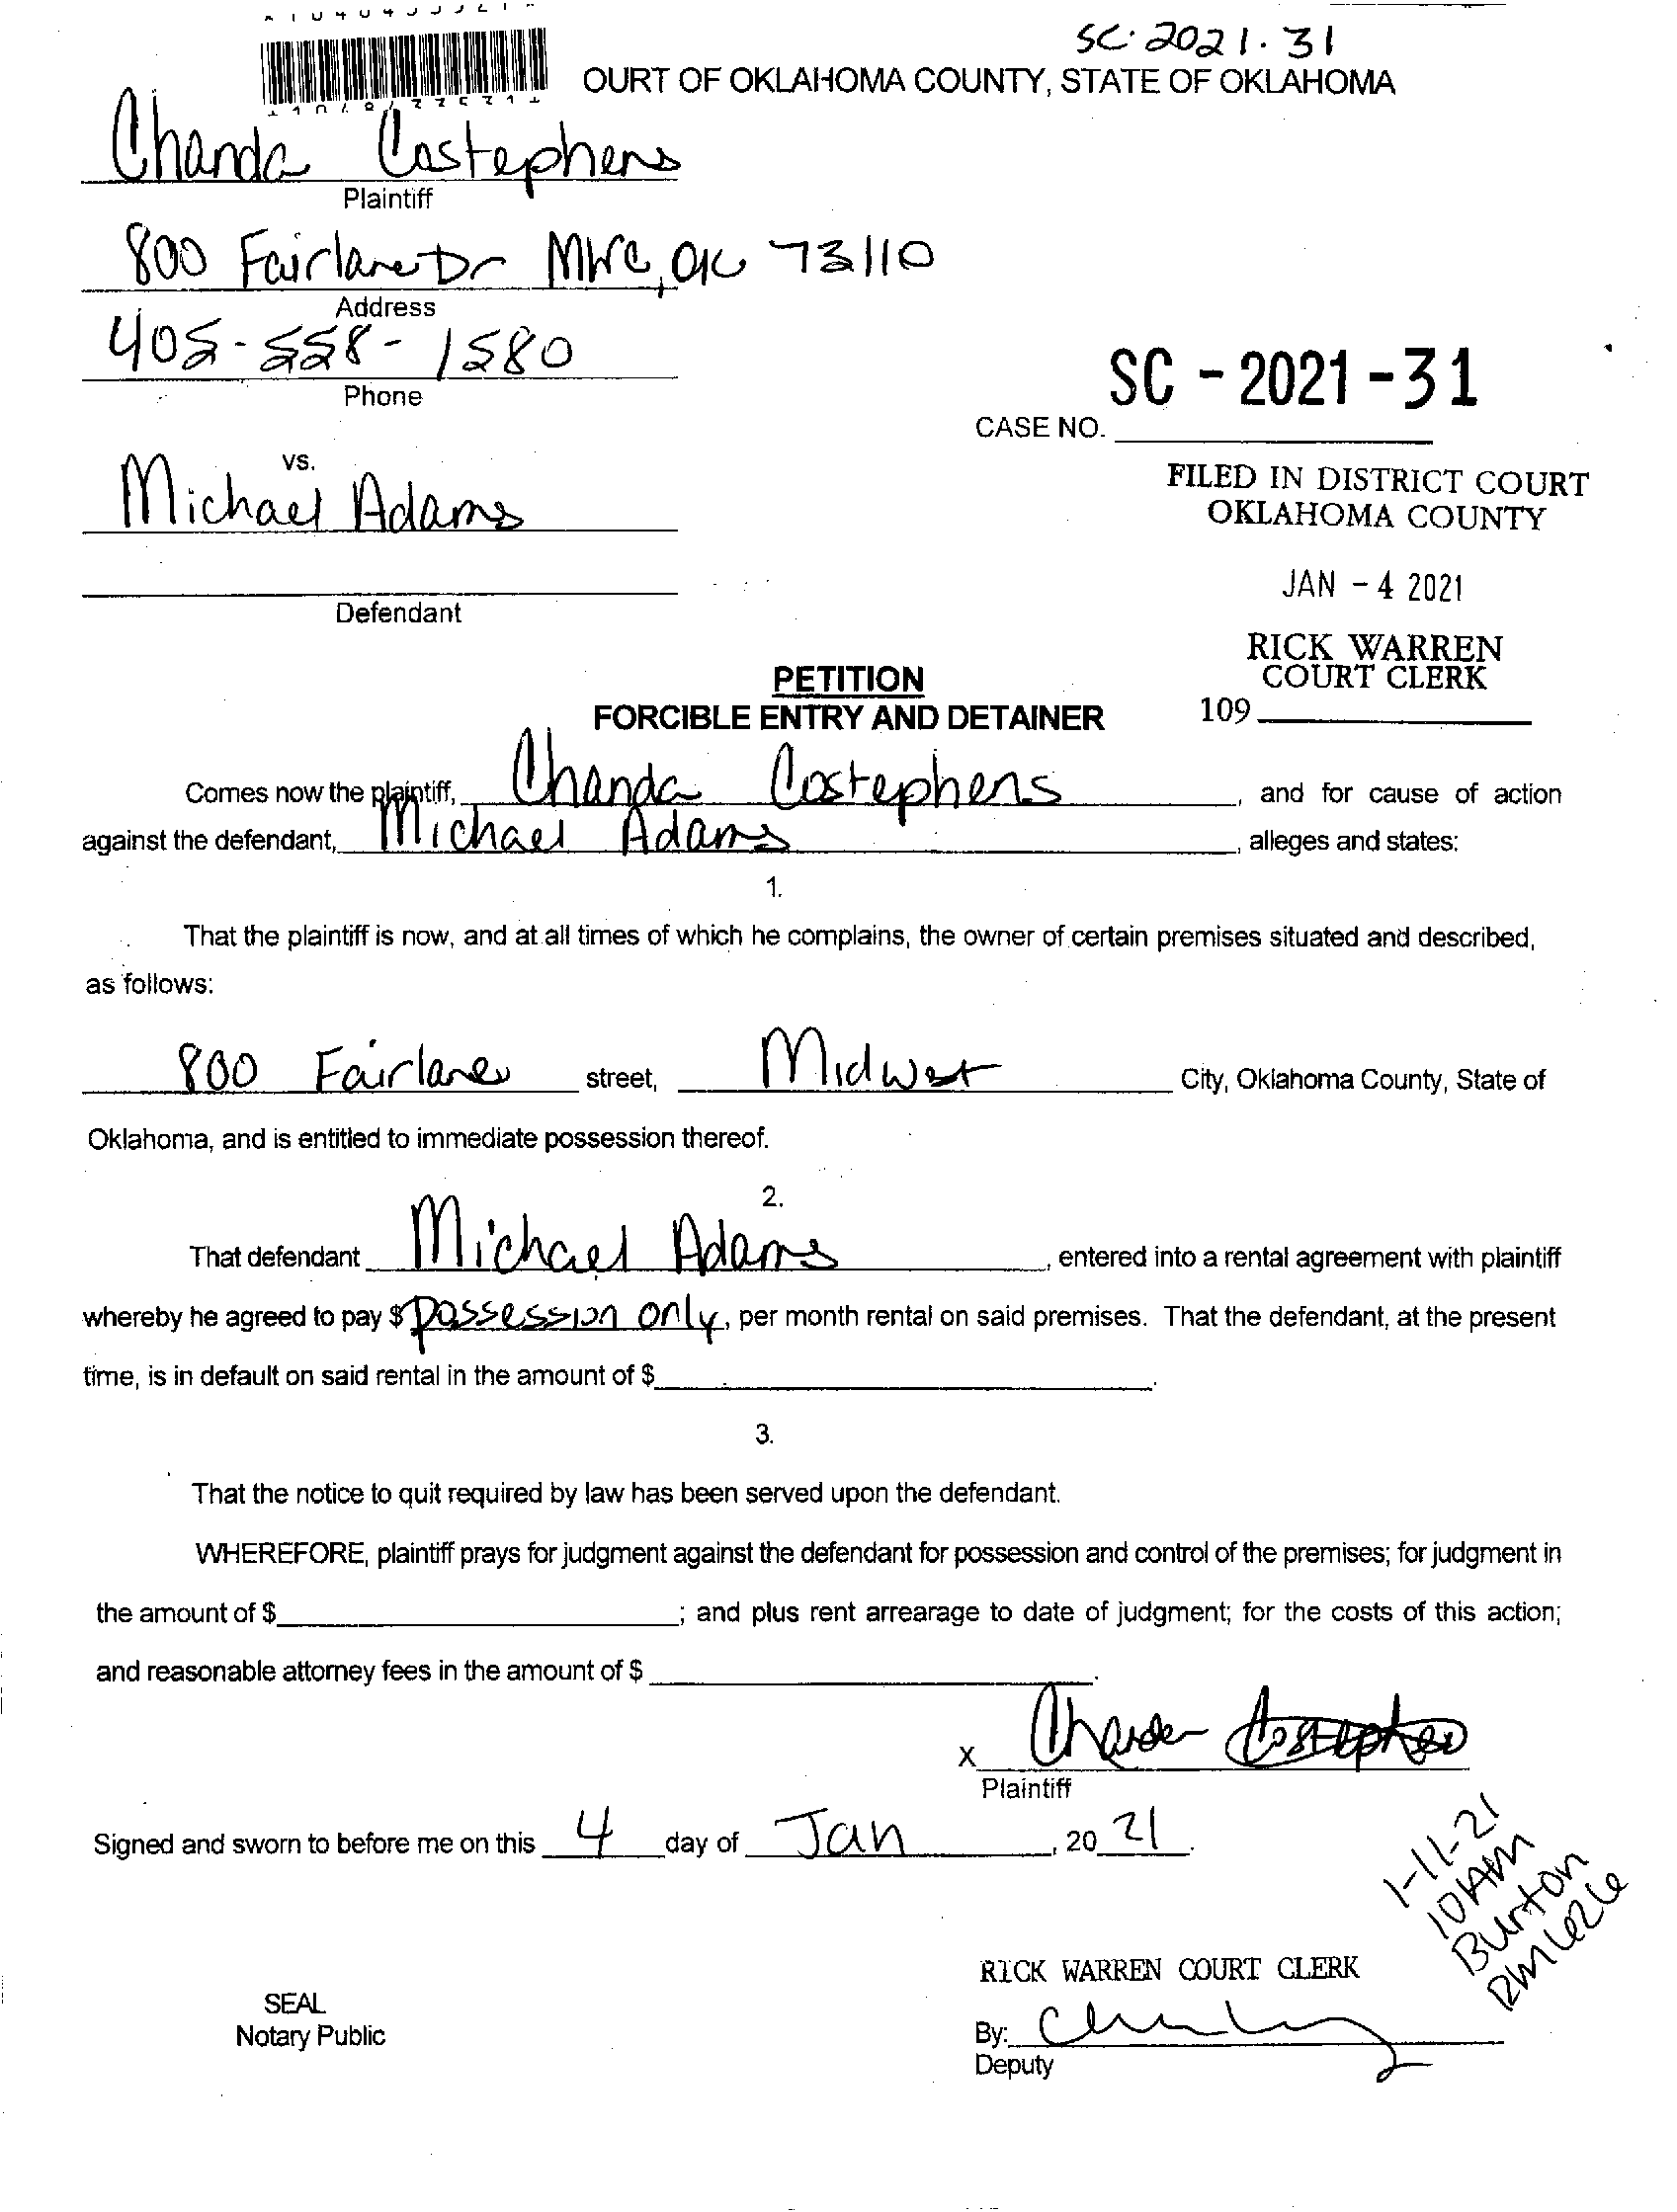 SC-2021-31
OURT OF OKLAHOMA COUNTY, STATE OF OKLAHOMA
Chanda Costephens
Plaintiff
800 Fairlane Dr MWC, OK 73110
Address
405-558-1580
Phone
SC - 2021 - 31
CASE NO.
vs.
Michael Adams
FILED IN DISTRICT COURT
OKLAHOMA COUNTY
JAN - 4 2021
Defendant
RICK WARREN
COURT CLERK
109
PETITION
FORCIBLE ENTRY AND DETAINER
Comes now the plaintiff, Chanda Costephens, and for cause of action
against the defendant, Michael Adams, alleges and states:
1.
That the plaintiff is now, and at all times of which he complains, the owner of certain premises situated and described,
as follows:
800 Fairlane street, Midwest City, Oklahoma County, State of
Oklahoma, and is entitled to immediate possession thereof.
2.
That defendant Michael Adams, entered into a rental agreement with plaintiff
whereby he agreed to pay $ possession only, per month rental on said premises. That the defendant, at the present
time, is in default on said rental in the amount of $ .
3.
That the notice to quit required by law has been served upon the defendant.
WHEREFORE, plaintiff prays for judgment against the defendant for possession and control of the premises; for judgment in
the amount of $ ; and plus rent arrearage to date of judgment; for the costs of this action;
and reasonable attorney fees in the amount of $ .
X Chanda Costephens
Plaintiff
Signed and sworn to before me on this 4 day of Jan, 2021.
1-11-21
10AM
Burton
RM 626
RICK WARREN COURT CLERK
SEAL
Notary Public
By:
Deputy